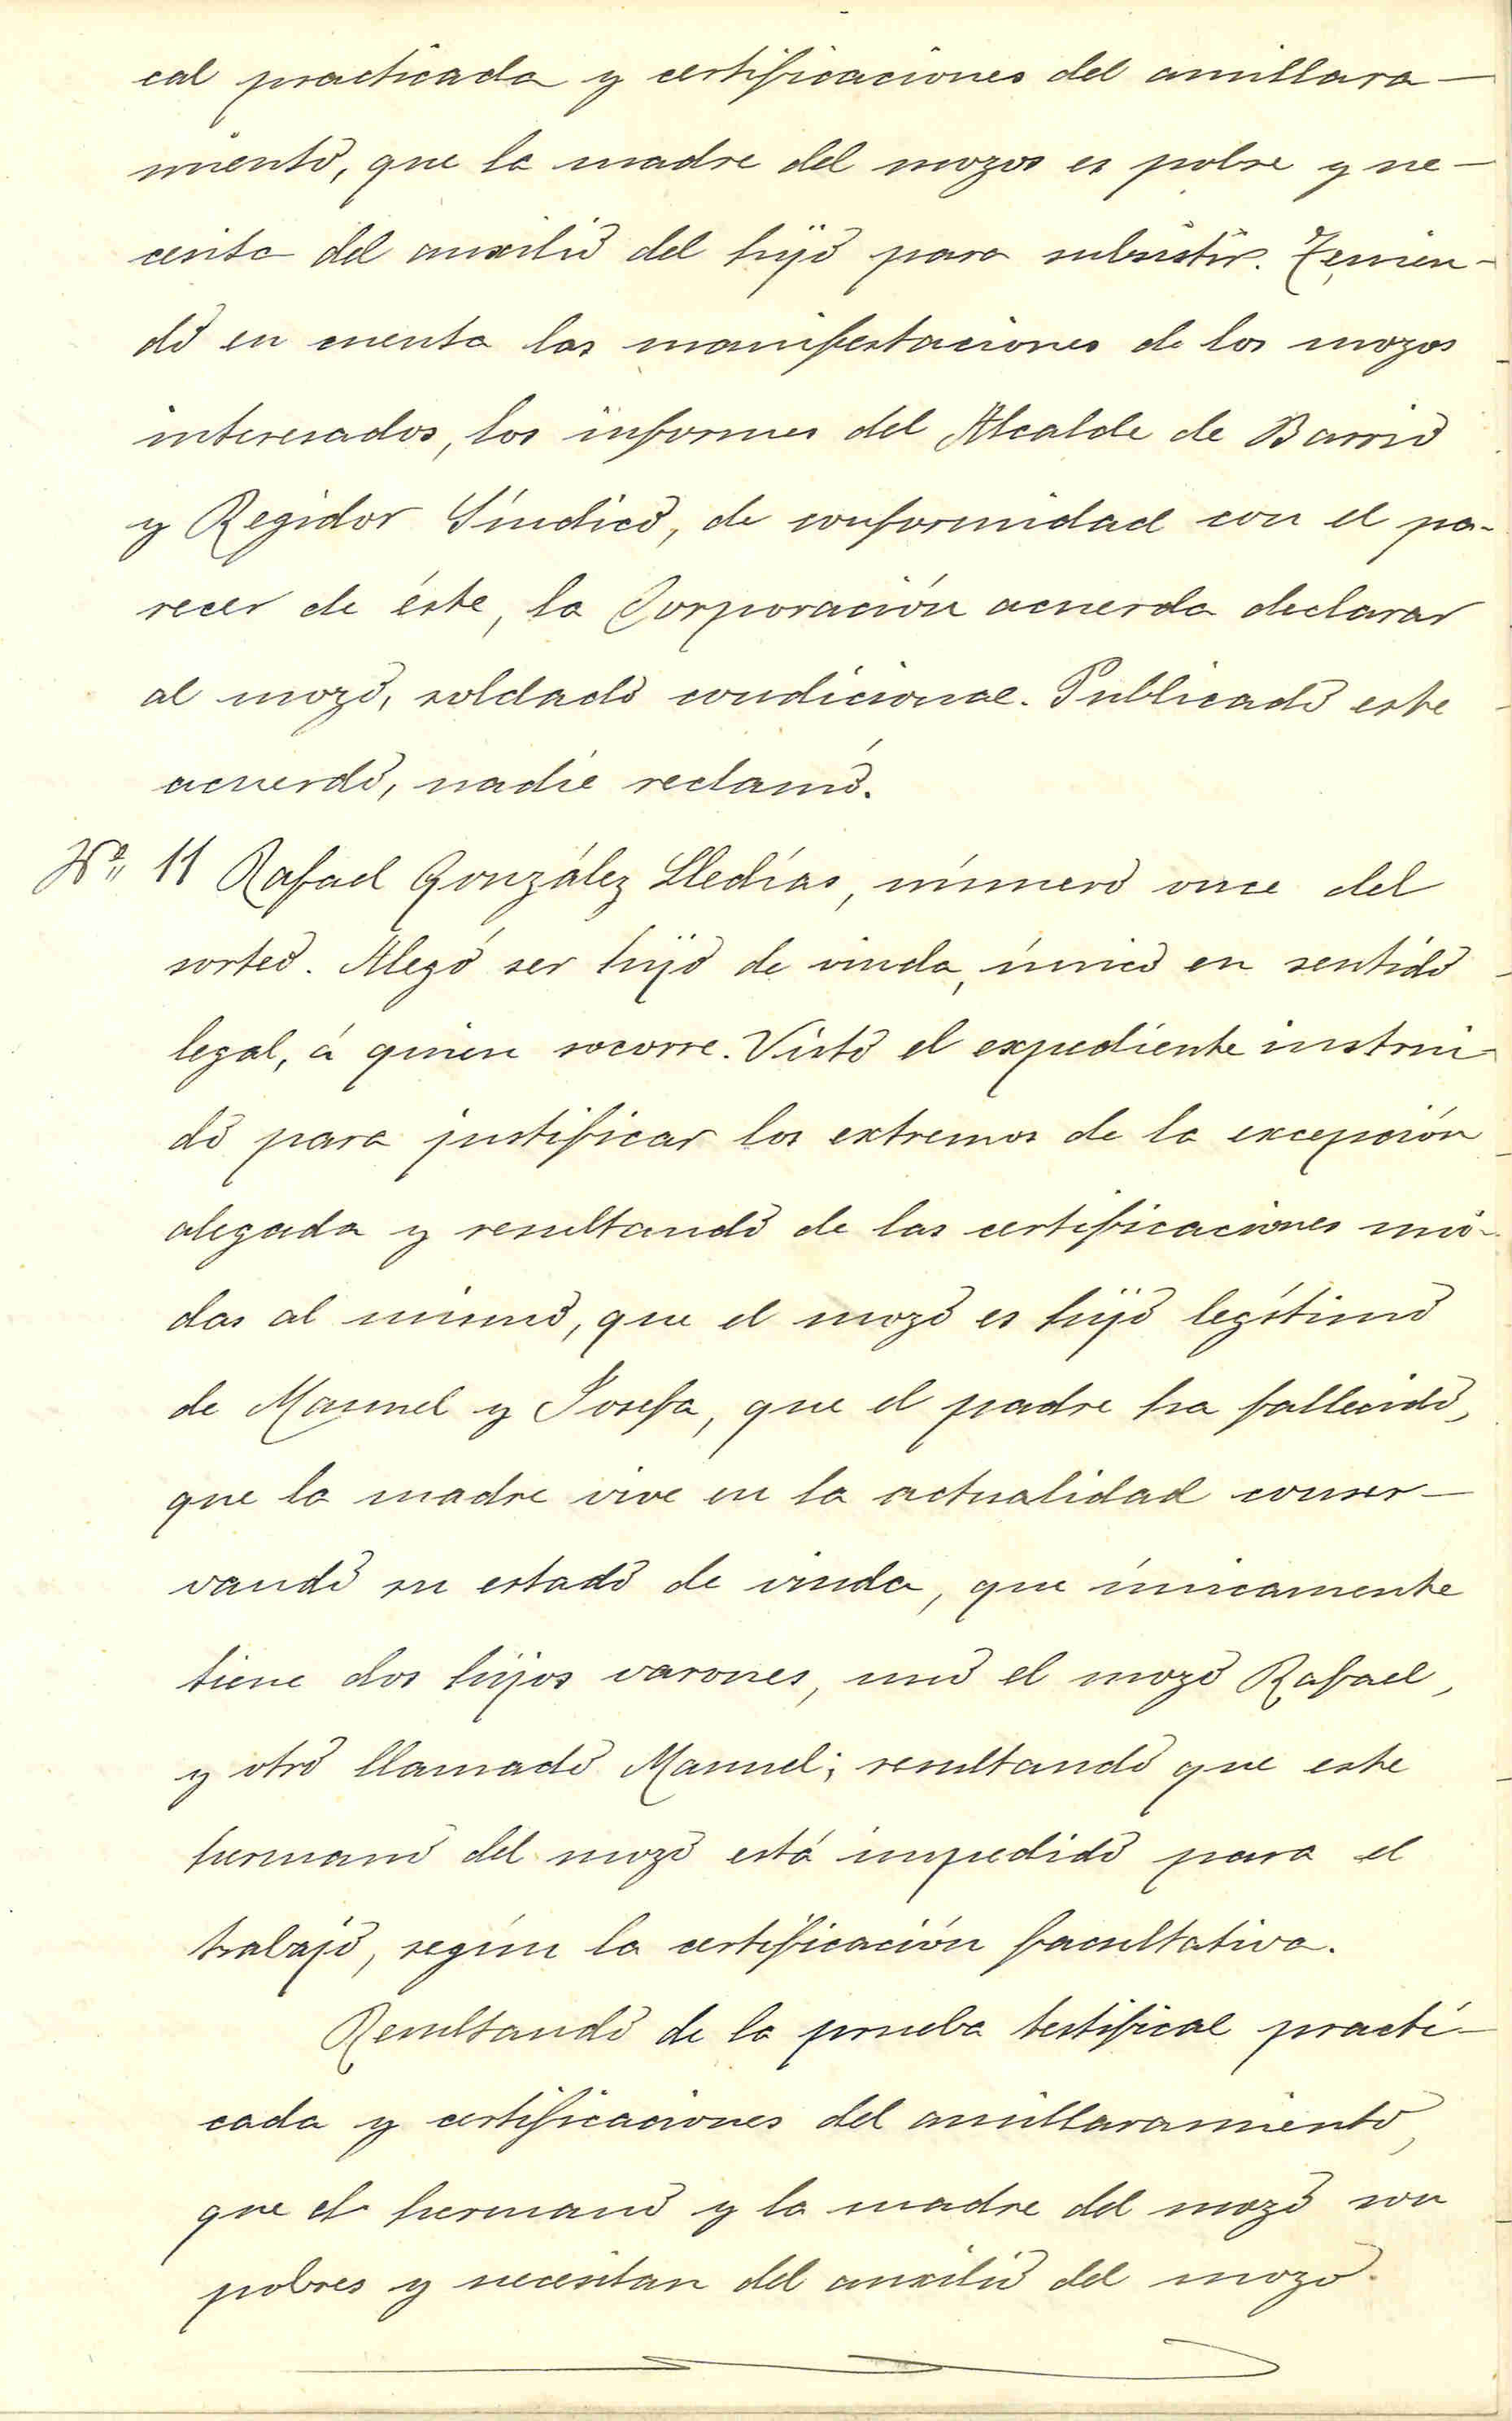 cal practicada y certificaciones del amillara-
miento, que la madre del mozos es pobre y ne-
cesita del auxilio del hijo para subsistir. Tenien-
do en cuenta las manifestaciones de los mozos
interesados, los informes del Alcalde de Barrio
y Regidor Síndico, de conformidad con el pa-
recer de éste, la Corporación acuerda declarar
al mozo, soldado condicional. Publicado este
acuerdo, nadie reclamó.
Nº 11 Rafael González Lledías, número once del
sorteo. Alegó ser hijo de viuda, único en sentido
legal, á quien socorre. Visto el expediente instrui-
do para justificar los extremos de la excepción
alegada y resultando de las certificaciones uni-
das al mismo, que el mozo es hijo legítimo
de Manuel y Josefa, que el padre ha fallecido,
que la madre vive en la actualidad conser-
vando su estado de viuda, que únicamente
tiene dos hijos varones, uno el mozo Rafael,
y otro llamado Manuel; resultando que este
hermano del mozo está impedido para el
trabajo, según la certificación facultativa.
Resultando de la prueba testifical practi-
cada y certificaciones del amillaramiento,
que el hermano y la madre del mozo son
pobres y necesitan del auxilio del mozo.